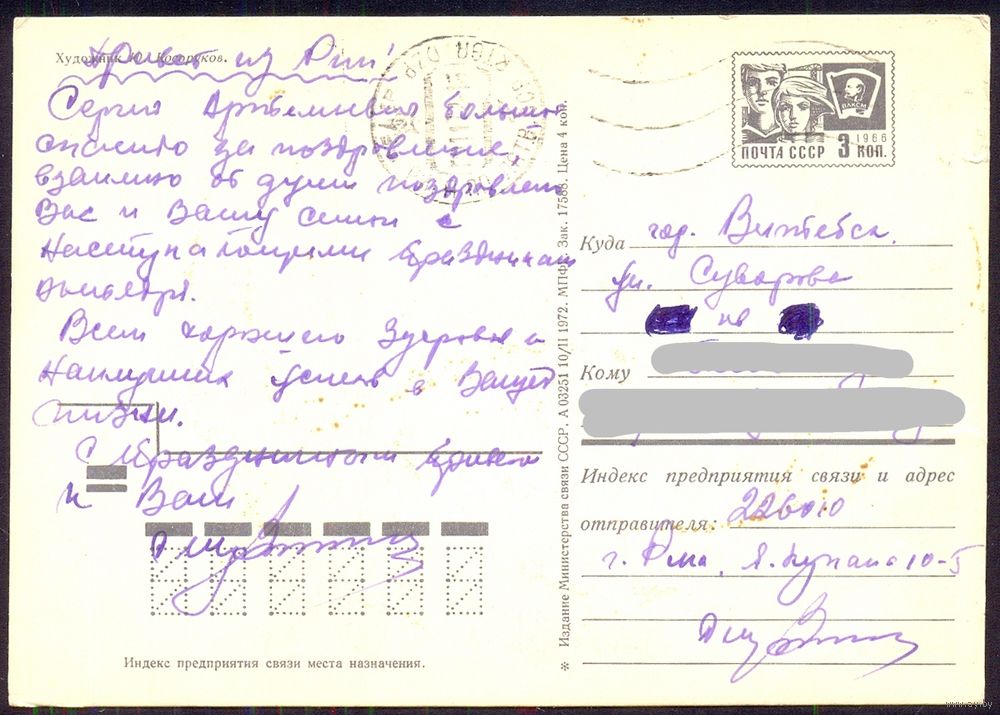 Художник Ю. Косоруков.
Привет из Риги!
Сергей Артемьевич большое
спасибо за поздравление,
взаимно от души поздравляю
Вас и Вашу семью с
наступающими праздниками
октября.
Всем хорошего здоровья и
наилучших успехов в Вашей
жизни.
С праздничным приветом
к Вам
Индекс предприятия связи места назначения.
* Издание Министерства связи СССР. А 03251 10/II 1972. МПФГ. Зак. 17588. Цена 4 коп.
ВЛКСМ
1966
ПОЧТА СССР 3 КОП.
Куда гор. Витебск.
ул. Суворова
кв
Кому
Индекс предприятия связи и адрес
отправителя: 226010
г. Рига, Я. Купала 10-5
www.ay.by